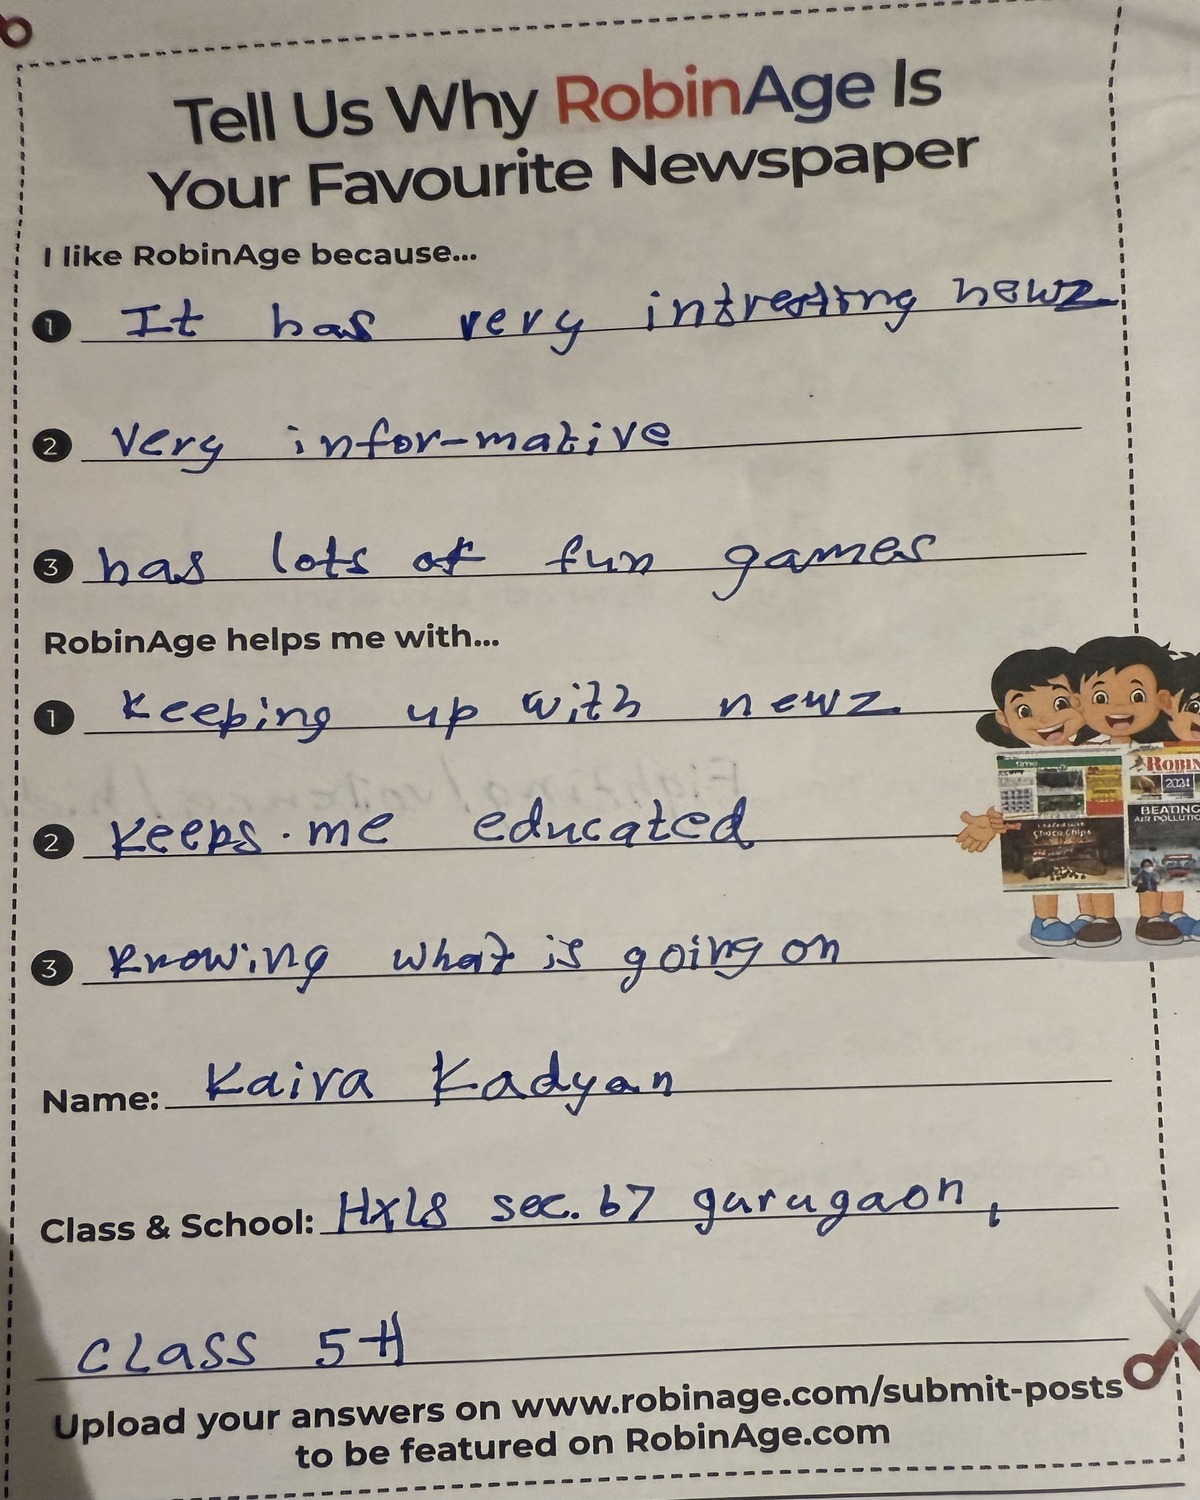 Tell Us Why RobinAge Is
Your Favourite Newspaper
I like RobinAge because...
1 It has very intresting newz
2 very infor-mative
3 has lots of fun games
RobinAge helps me with...
1 keeping up with newz
time
ROBIN
2021
BEATING
AIR POLLUTIO
Choco Chips
2 keeps me educated
3 knowing what is going on
Name: Kaira Kadyan
Class & School: HXLS sec. 67 gurugaon,
CLASS 5-H
Upload your answers on www.robinage.com/submit-posts
to be featured on RobinAge.com